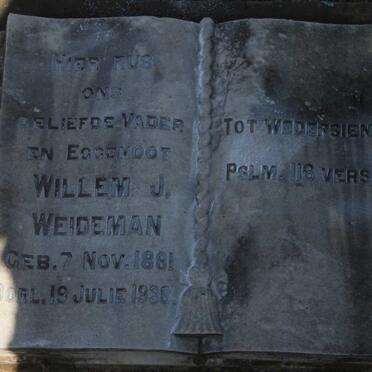 HIER RUS
ONS
GELIEFDE VADER
EN EGGENOOT
WILLEM J.
WEIDEMAN
GEB. 7 NOV. 1881
OORL. 19 JULIE
TOT WEDERSIEN
PSLM. 118 VERS